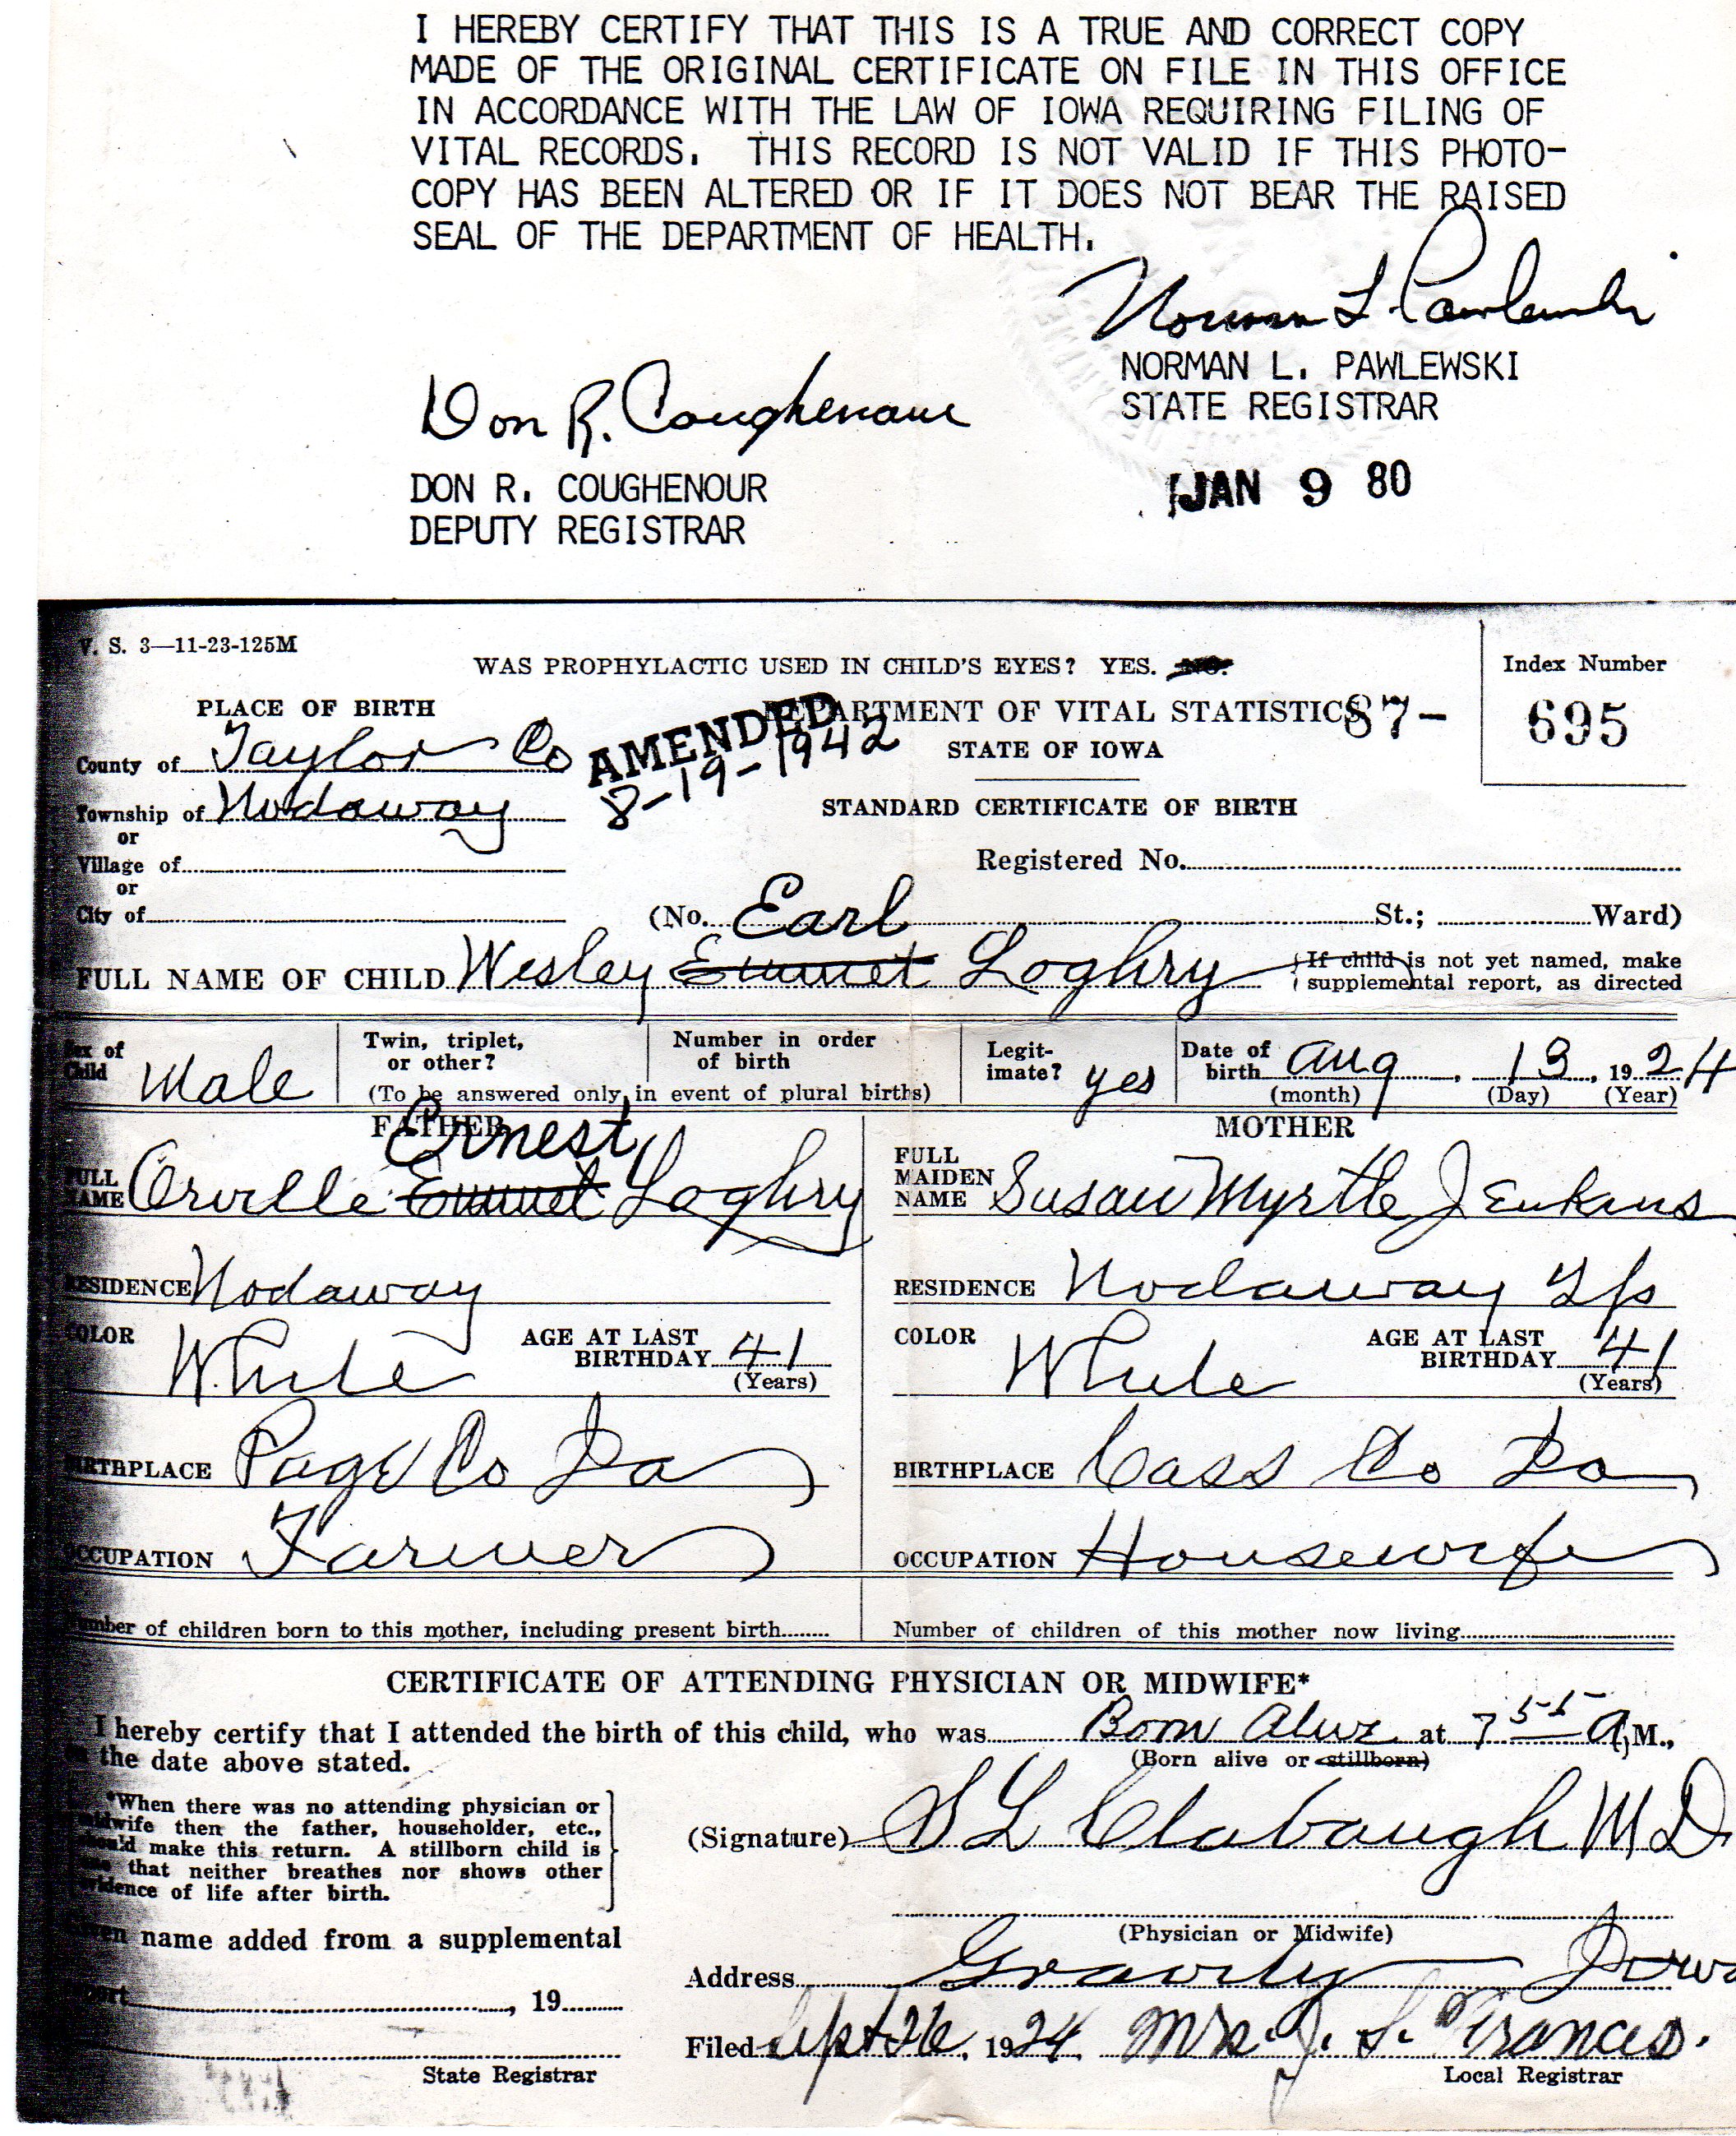 I HEREBY CERTIFY THAT THIS IS A TRUE AND CORRECT COPY
MADE OF THE ORIGINAL CERTIFICATE ON FILE IN THIS OFFICE
IN ACCORDANCE WITH THE LAW OF IOWA REQUIRING FILING OF
VITAL RECORDS. THIS RECORD IS NOT VALID IF THIS PHOTO-
COPY HAS BEEN ALTERED OR IF IT DOES NOT BEAR THE RAISED
SEAL OF THE DEPARTMENT OF HEALTH.
Norman L Pawlewski
NORMAN L. PAWLEWSKI
STATE REGISTRAR
Don R. Coughenour
DON R. COUGHENOUR
DEPUTY REGISTRAR
JAN 9 80
V. S. 3—11-23-125M
WAS PROPHYLACTIC USED IN CHILD'S EYES? YES. NO.
Index Number
87- 695
PLACE OF BIRTH
DEPARTMENT OF VITAL STATISTICS
STATE OF IOWA
AMENDED
8-19-1942
County of Taylor Co
Township of Nodaway
or
Village of
or
City of
STANDARD CERTIFICATE OF BIRTH
Registered No.
(No. St.; Ward)
Earl
FULL NAME OF CHILD Wesley Emmet Loghry
If child is not yet named, make
supplemental report, as directed
Sex of
Child Male
Twin, triplet,
or other?
Number in order
of birth
(To be answered only in event of plural births)
Legit-
imate? yes
Date of
birth Aug, 13, 1924
(month) (Day) (Year)
FATHER
Ernest
FULL
NAME Orville Emmet Loghry
RESIDENCE Nodaway
COLOR White
AGE AT LAST
BIRTHDAY 41
(Years)
BIRTHPLACE Page Co Ia
OCCUPATION Farmer
Number of children born to this mother, including present birth
MOTHER
FULL
MAIDEN
NAME Susan Myrtle Jenkins
RESIDENCE Nodaway Tp
COLOR White
AGE AT LAST
BIRTHDAY 41
(Years)
BIRTHPLACE Cass Co Ia
OCCUPATION Housewife
Number of children of this mother now living
CERTIFICATE OF ATTENDING PHYSICIAN OR MIDWIFE*
I hereby certify that I attended the birth of this child, who was Born Alive at 7 55 A M.,
(Born alive or stillborn)
on the date above stated.
*When there was no attending physician or
midwife then the father, householder, etc.,
should make this return. A stillborn child is
one that neither breathes nor shows other
evidence of life after birth.
(Signature) S L Clabaugh MD.
(Physician or Midwife)
Given name added from a supplemental
report , 19
State Registrar
Address Gravity Iowa
Filed Sept 26, 1924, Mrs. J. S. Frances.
Local Registrar